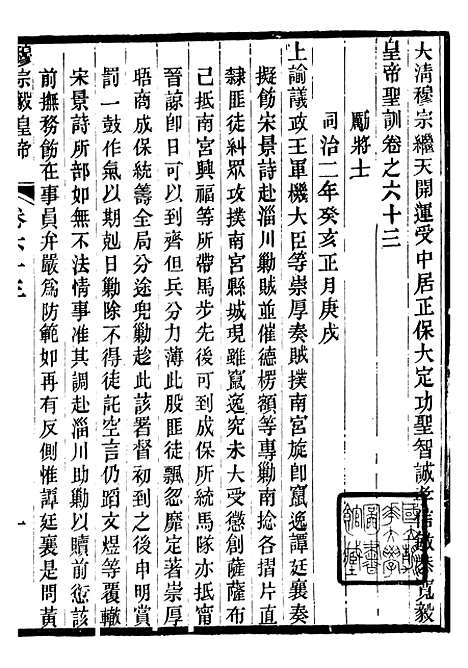 大清穆宗繼天開運受中居正保大定功聖智誠孝信敏恭寬毅
皇帝聖訓卷之六十三
勵將士
同治二年癸亥正月庚戌
上諭議政王軍機大臣等崇厚奏賊撲南宮旋卽竄逸譚廷襄奏
擬飭宋景詩赴淄川勦賊並催德楞額等專勦南捻各摺片直
隸匪徒糾眾攻撲南宮縣城現雖竄逸究未大受懲創薩薩布
已抵南宮興福等所帶馬步先後可到成保所統馬隊亦抵甯
晉諒卽日可以到齊但兵分力薄此股匪徒飄忽靡定著崇厚
晤商成保統籌全局分途兜勦趁此該署督初到之後申明賞
罰一鼓作氣以期剋日勦除不得徒託空言仍蹈文煜等覆轍
宋景詩所部如無不法情事准其調赴淄川助勦以贖前愆該
前撫務飭在事員弁嚴為防範如再有反側惟譚廷襄是問黃
穆宗毅皇帝
卷六十三
一